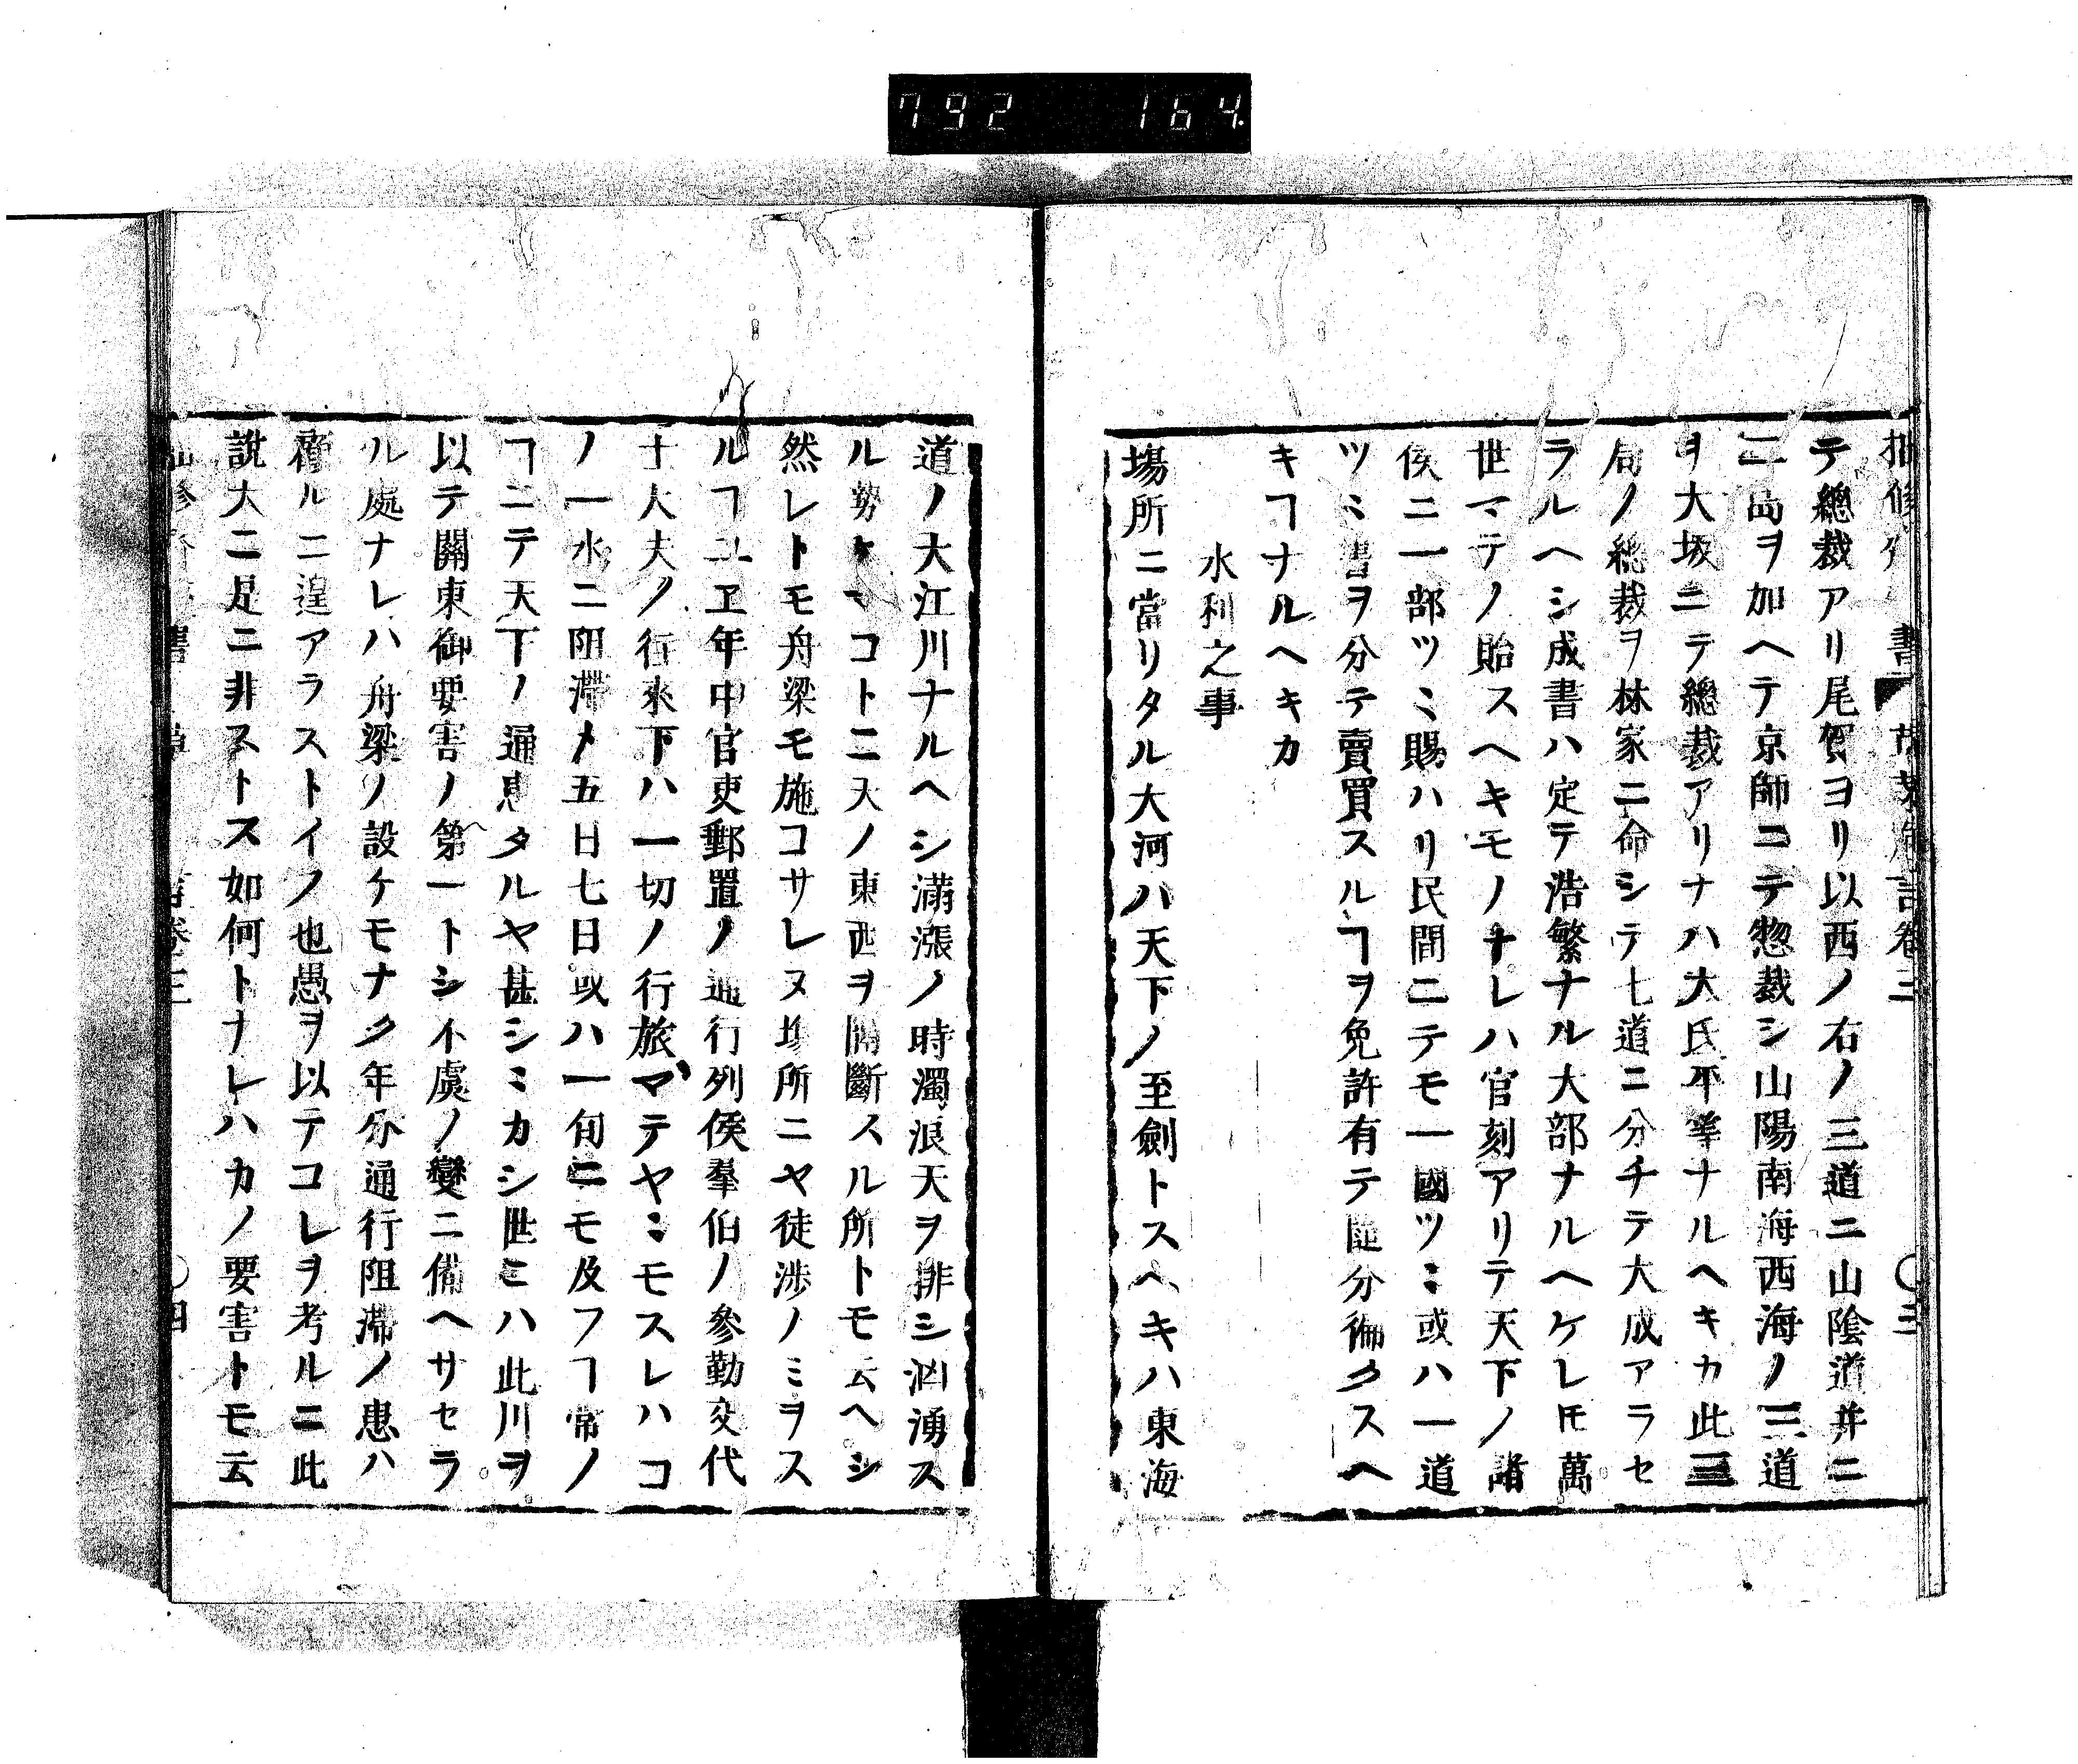 792 164
テ總裁アリ尾賀ヨリ以西ノ右ノ三道ニ山陰道并ニ
二島ヲ加ヘテ京師ニテ惣裁シ山陽南海西海ノ三道
ヲ大坂ニテ總裁アリナハ大氏平準ナルヘキカ此三
局ノ總裁ヲ林家ニ命シテ七道ニ分チテ大成アラセ
ラルヘシ成書ハ定テ浩繁ナル大部ナルヘケレ𪜈萬
世マテノ貽スヘキモノナレハ官刻アリテ天下ノ諸
侯ニ一部ツヽ賜ハリ民間ニテモ一國ツヽ或ハ一道
ツヽ書ヲ分テ賣買スルヿヲ免許有テ随分徧クスヘ
キヿナルヘキカ
水利之事
場所ニ當リタル大河ハ天下ノ至劍トスヘキハ東海
道ノ大江川ナルヘシ滿漲ノ時濁浪天ヲ排シ洶湧ス
ル勢ヒマコトニ天ノ東西ヲ開斷スル所トモ云ヘシ
然レトモ舟梁モ施コサレヌ場所ニヤ徒渉ノミヲス
ルヿユヱ年中官吏郵置ノ通行列侯羣伯ノ參勤交代
士大夫ノ行來下ハ一切ノ行旅マテヤミモスレハコ
ノ一水ニ阻滯メ五日七日或ハ一旬ニモ及フヿ常ノ
ヿニテ天下ノ通患タルヤ甚シミカシ世ミハ此川ヲ
以テ關東御要害ノ第一トシ不虞ノ變ニ備ヘサセラ
ル處ナレハ舟梁ノ設ケモナク年分通行阻滯ノ患ハ
顧ルニ遑アラストイフ也愚ヲ以テコレヲ考ルニ此
說大ニ是ニ非ストス如何トナレハカノ要害トモ云